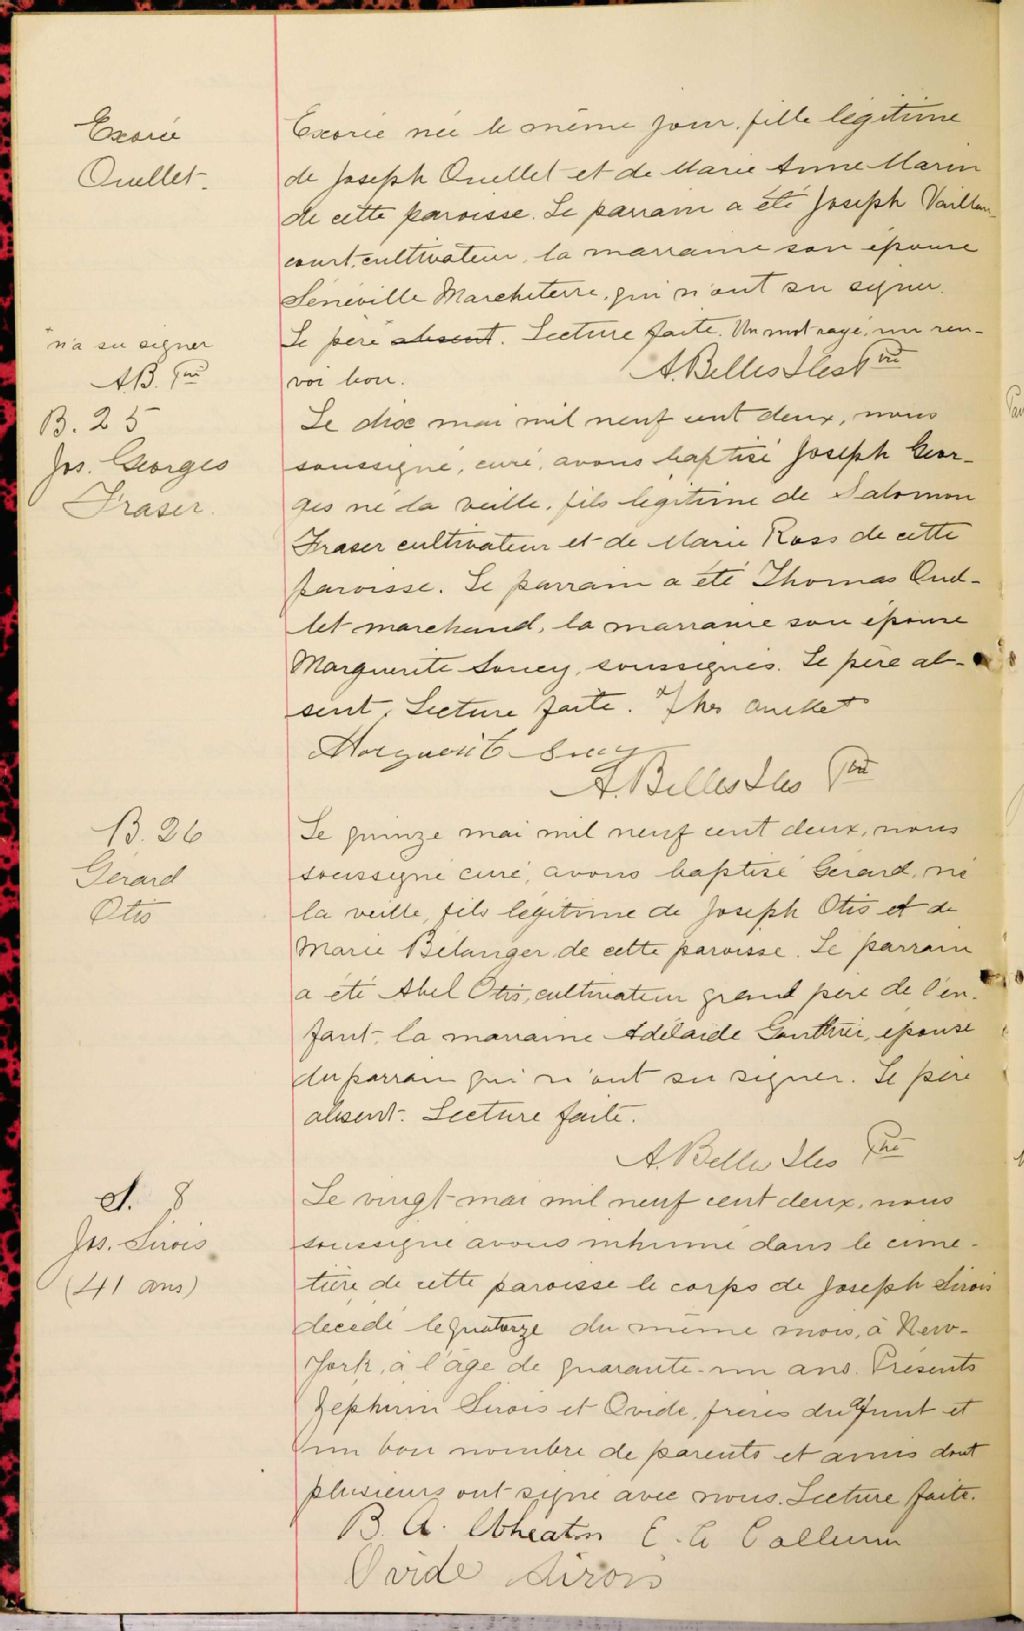 Exorie
Ouellet.
Exorie née le même jour, fille légitime
de Joseph Ouellet et de Marie Anne Marin
de cette paroisse. Le parrain a été Joseph Vaillan-
court, cultivateur, la marraine son épouse
Sénéville Marcheterre, qui n'ont su signer.
Le père absent. Lecture faite. Un mot rayé, un ren-
voi bon.
A. Belles Iles Ptre
n'a su signer
A.B. Ptre
B. 25
Jos. Georges
Fraser.
Le dix mai mil neuf cent deux, nous
soussigné, curé, avons baptisé Joseph Geor-
ges né la veille, fils légitime de Salomon
Fraser cultivateur et de Marie Ross de cette
paroisse. Le parrain a été Thomas Ouel-
let marchand, la marraine son épouse
Marguerite Soucy, soussignés. Le père ab-
sent. Lecture faite. Ths Ouellet
Marguerite Soucy
A. Belles Iles Ptre
B. 26
Gérard
Otis
Le quinze mai mil neuf cent deux, nous
soussigné curé, avons baptisé Gérard, né
la veille, fils légitime de Joseph Otis et de
Marie Bélanger de cette paroisse. Le parrain
a été Abel Otis, cultivateur grand père de l'en-
fant, la marraine Adélaïde Gauthier, épouse
du parrain qui n'ont su signer. Le père
absent. Lecture faite.
A. Belles Iles Ptre
S. 8
Jos. Sirois
(41 ans)
Le vingt mai mil neuf cent deux, nous
soussigné avons inhumé dans le cime-
tière de cette paroisse le corps de Joseph Sirois
décédé le quatorze du même mois, à New-
York, à l'âge de quarante-un ans. Présents
Zéphirin Sirois et Ovide, frères du défunt et
un bon nombre de parents et amis dont
plusieurs ont signé avec nous. Lecture faite.
B. A. Wheaton E. A Callum
Ovide Sirois